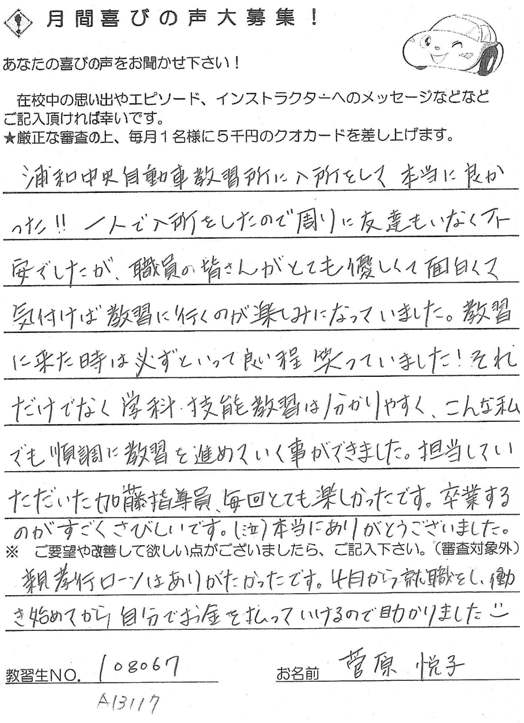 月間喜びの声大募集！
あなたの喜びの声をお聞かせ下さい！
在校中の思い出やエピソード、インストラクターへのメッセージなどなど
ご記入頂ければ幸いです。
★厳正な審査の上、毎月１名様に５千円のクオカードを差し上げます。
浦和中央自動車教習所に入所をして本当に良か
った!! 一人で入所をしたので周りに友達もいなく不
安でしたが、職員の皆さんがとても優しくて面白くて
気付けば教習に行くのが楽しみになっていました。教習
に来た時は必ずといって良い程笑っていました！それ
だけでなく学科・技能教習は分かりやすく、こんな私
でも順調に教習を進めていく事ができました。担当してい
ただいた加藤指導員、毎回とても楽しかったです。卒業する
のがすごくさびしいです。(泣)本当にありがとうございました。
※ ご要望や改善して欲しい点がございましたら、ご記入下さい。（審査対象外）
親孝行ローンはありがたかったです。4月から就職をし、働
き始めてから、自分でお金を払っていけるので助かりました
教習生NO. 108067 お名前 菅原 悦子
A13117